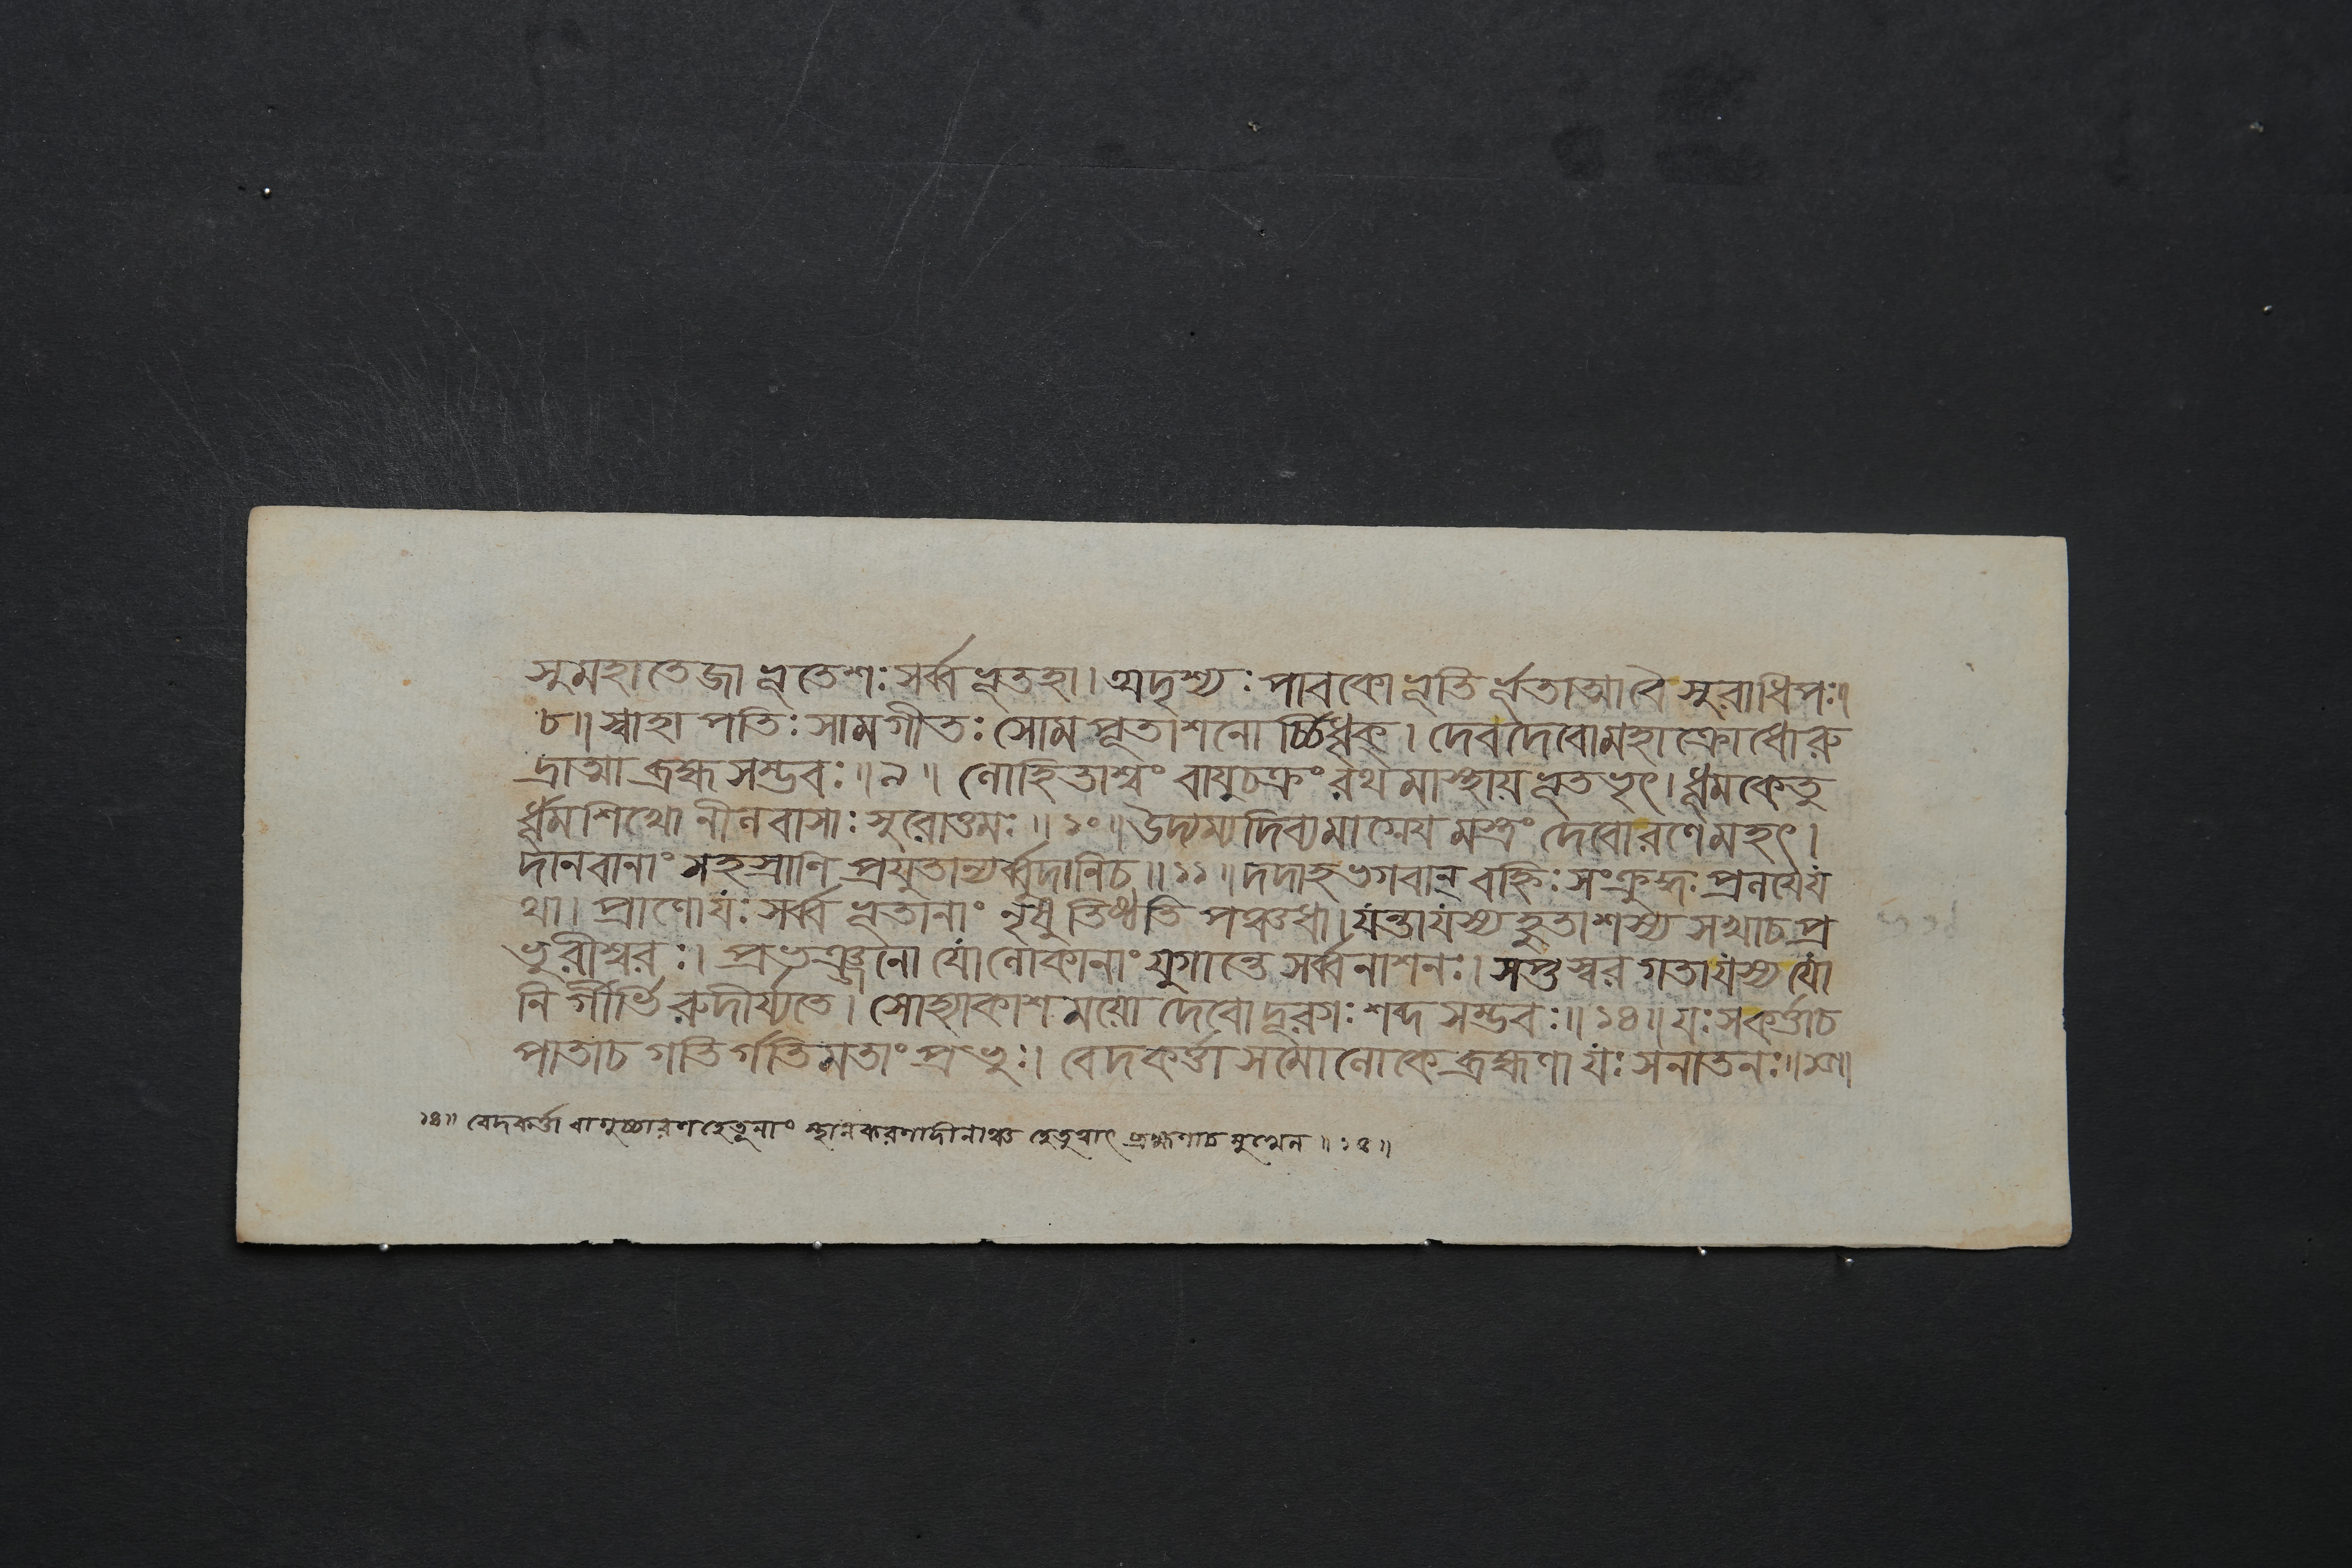 সুমহাতেজা ভূতেশঃ সর্ব্বভূতহা। অদৃশ্যঃ পাবকো ভূতি র্ভূতাত্মাবৈ সুরাধিপঃ॥
৮॥ স্বাহা পতিঃ সামগীতঃ সোমপূতাশনো র্চ্চির্ধৃক্। দেবদেবোমহাক্রোধোরু
দ্রাত্মা ব্রহ্মসম্ভবঃ॥ ৯॥ লোহিতাশ্বং বাযুচক্রং রথমাস্থায় ভূতভৃৎ। ধূমকেতু
র্ধূমশিখো নীলবাসাঃ সুরোত্তমঃ॥ ১০॥ উদ্যম্যদিব্যমাগ্নেয মস্ত্রং দেবোরণেমহৎ।
দানবানাং সহস্রাণি প্রযুতান্যর্ব্বুদানিচ॥ ১১॥ দদাহ ভগবান্ বহ্নিঃ সংক্রুদ্ধঃ প্রলযেয
থা। প্রাণোযঃ সর্ব্বভূতানাং নৃষু তিষ্ঠতি পঞ্চধা। যন্তাযস্য হুতাশস্য সখাচ প্র
ভুরীশ্বরঃ। প্রভঞ্জনো যোলোকানাং যুগান্তে সর্ব্বনাশনঃ। সপ্তস্বর গতাযস্য যো
নি র্গীর্ভি রুদীর্য্যতে। সোহ্যাকাশময়ো দেবোদূরগঃ শব্দসম্ভবঃ॥ ১৪॥ যঃ সকর্ত্তাচ
পাতাচ গতি র্গতিমতাং প্রভুঃ। বেদকর্ত্তা সমোলোকে ব্রহ্মণা যঃ সনাতনঃ॥
১৪॥ বেদকর্ত্তা বাগুচ্চারণহেতূনাং স্থানকরণাদীনাঞ্চ হেতুত্বাৎ ব্রহ্মণাচ মুখেন॥ ১৪॥